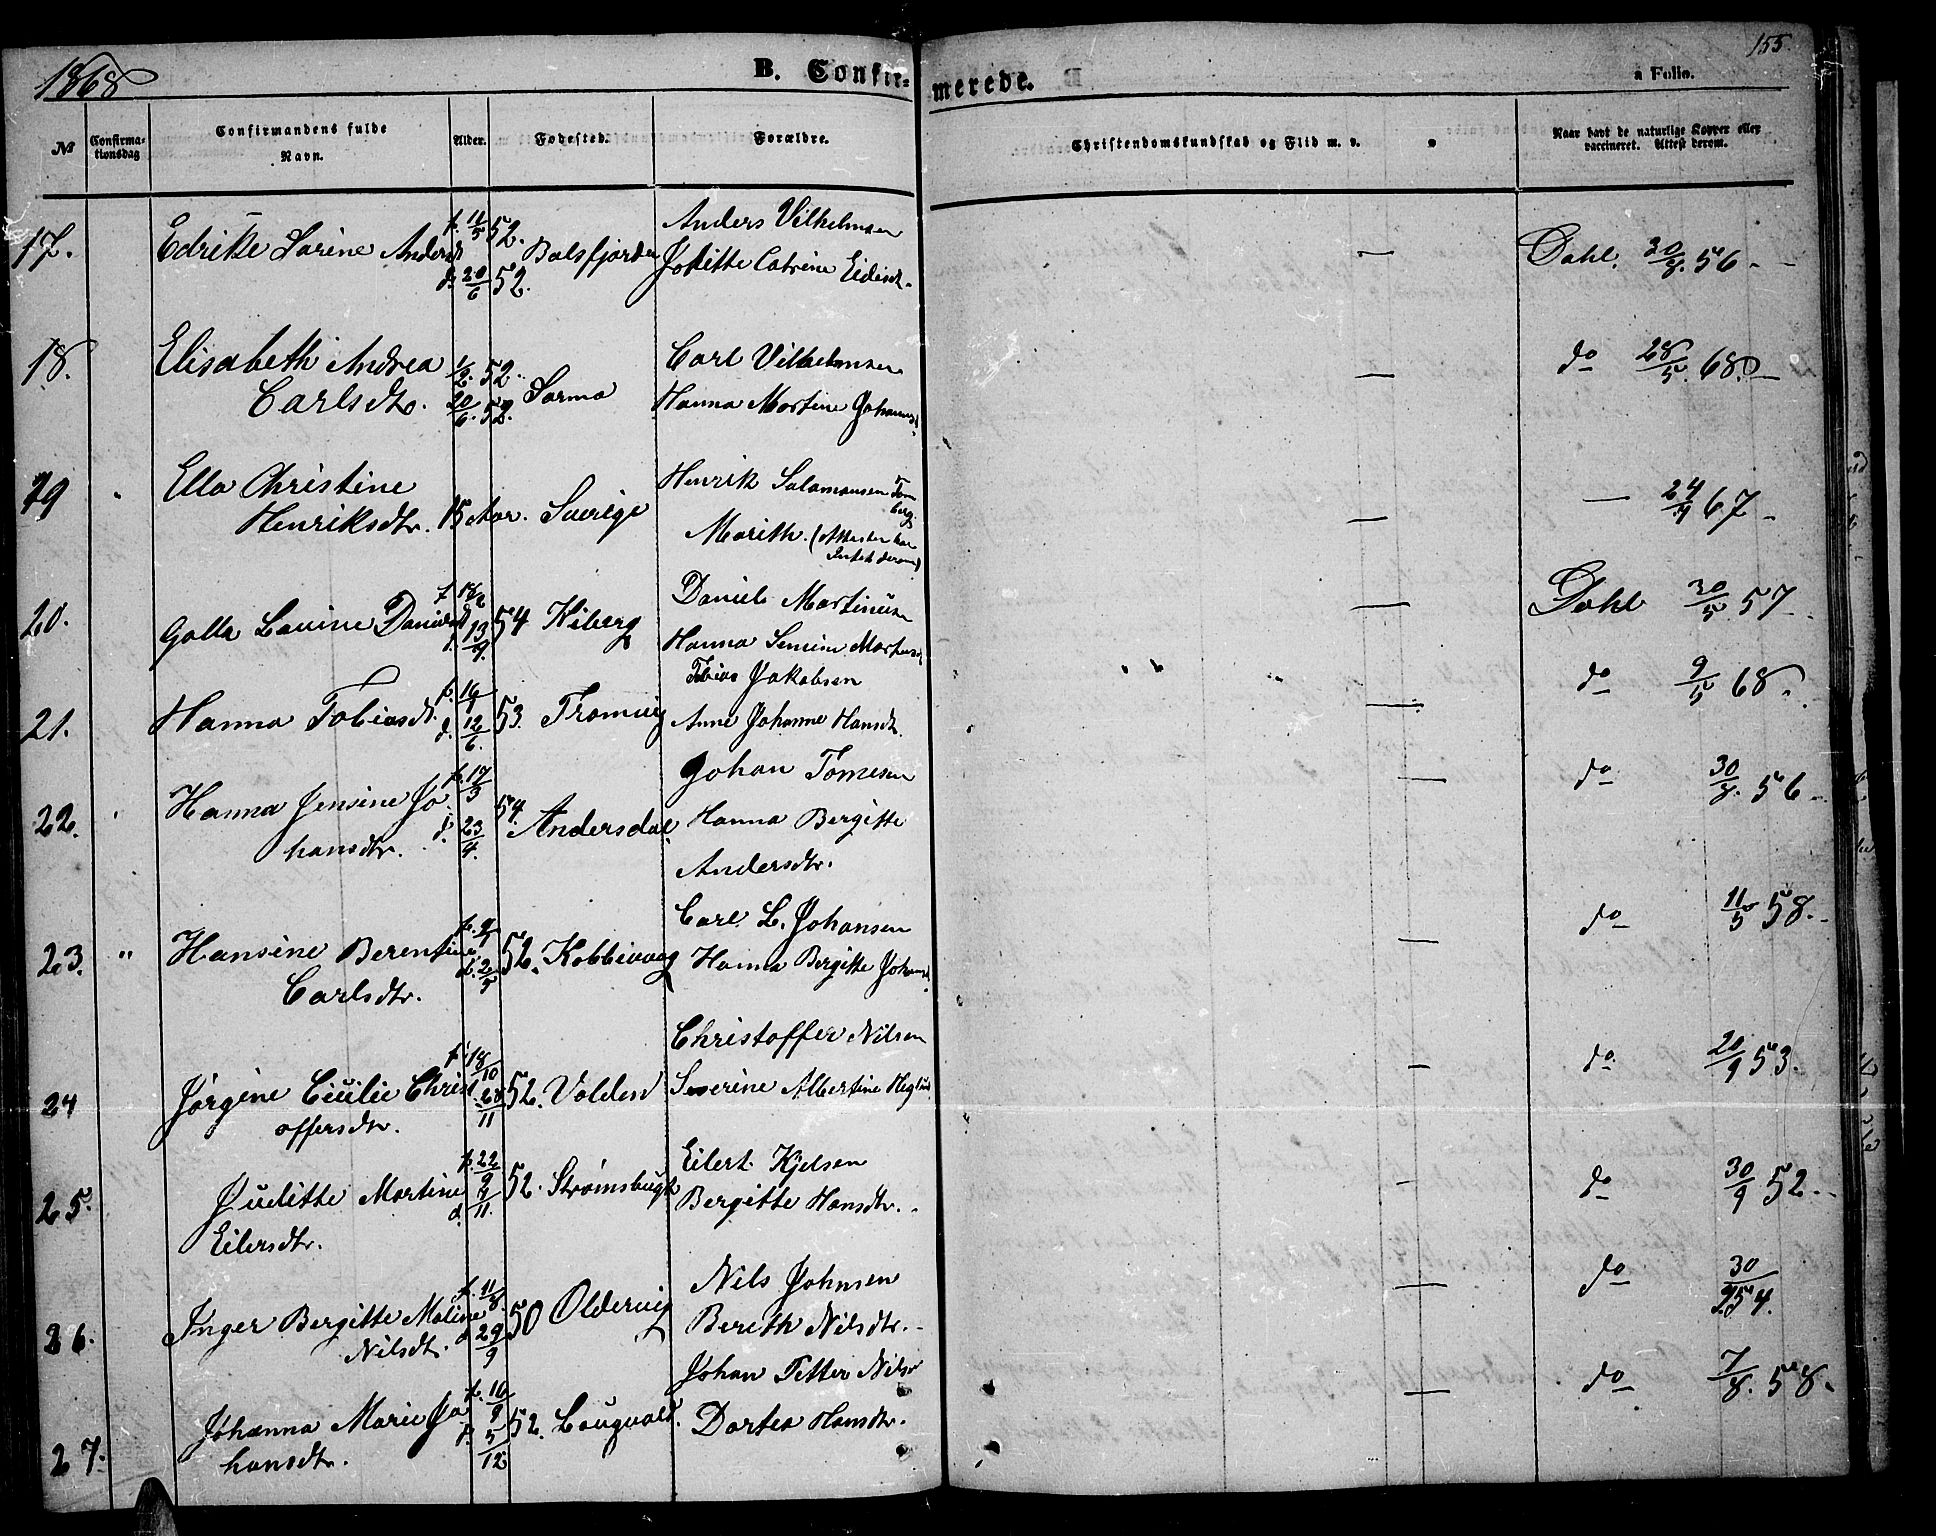 1868
B. Confir-
merede.
155
a Folio.
№
Confirma-
tionsdag
Confirmandens fulde
Navn.
Alder.
Fødested.
Forældre.
Christendomskundskab og Flid m. v.
Naar havt de naturlige Kopper eller
vaccineret. Attest derom.
17. Edrikke Sarine Andersd f. 11/5 52. Balsfjorden Anders Vilhelmsen — Dahl. 30/8. 56 -
d. 20/6 52. Jokitte Catrine Eidisd.
18. Elisabeth Andrea 1/2. 52. Sarma Carl Vilhelmsen — do 28/5. 68.
Carlsdtr. 20/6. 52. Hanna Martine Johannsd.
19 Ella Christine Henrik Salamonsen Tornberg.
Henriksdtr. 15 Aar. Sverige — 24/4 67
Marith. (Attesten har
Intet derom)
20. Galla Lavine Danielsd f. 13/9. 54 Kiberg Daniel Martinus — Dahl 30/5. 57
Hanna Sensine Martinsd
21. Hanna Tobiasdt. d. 12/6. 53. Tromvig Tobias Jakobsen — do 9/5 68.
Anne Johanne Hansdt.
22. Hanna Jensine Jo- f. 17/3 54. Andersdal Johan Tomesen — do 30/8. 56
hansdtr. d. 23/4. Hanna Bergitte
Andersdtr.
23. Hansine Berentine d. 2/5 52. Kobbevaag Carl L. Johansen — do 11/5 58.
Carlsdtr. Hanna Bergitte Johansd.
24 Jørgine Cicilie Christ f. 18/10 52. Volden Christoffer Nilsen — do 20/9 53.
offersdtr. 28/11 Severine Albertine Heglund
25. Juditte Martine f. 22/9 52. Strømsbugt Eilert Kjelsen — do 30/9 52.
Eilersdtr. d. 7/11. Bergitte Hansdtr.
26. Inger Bergitte Maline f. 11/8. 50 Oldervig Nils Johnsen — do 30/9 54.
Nilsdt. d. 29/9 Bereth Nilsdtr.
27. Johanna Marie Jo f. 16/9 52. Langvold. Johan Petter Nils — do 7/8. 58.
hansdtr. d. 5/12 Dortea Hansdtr.